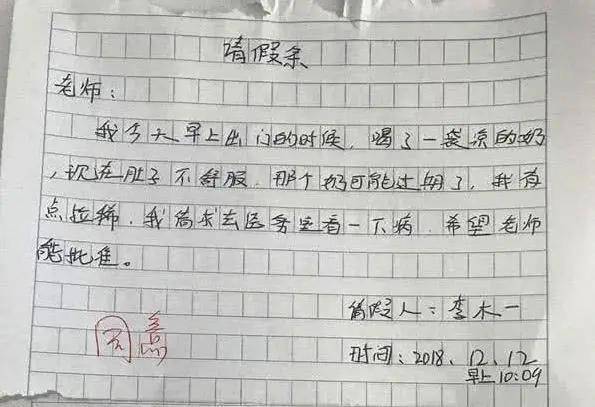 请假条
老师:
我今天早上出门的时候，喝了一袋凉的奶
，现在肚子不舒服，那个奶可能过期了，我有
点拉稀，我需求去医务室看一下病，希望老师
能批准。
请假人:李木一
同意
时间:2018、12、12
早上10:09